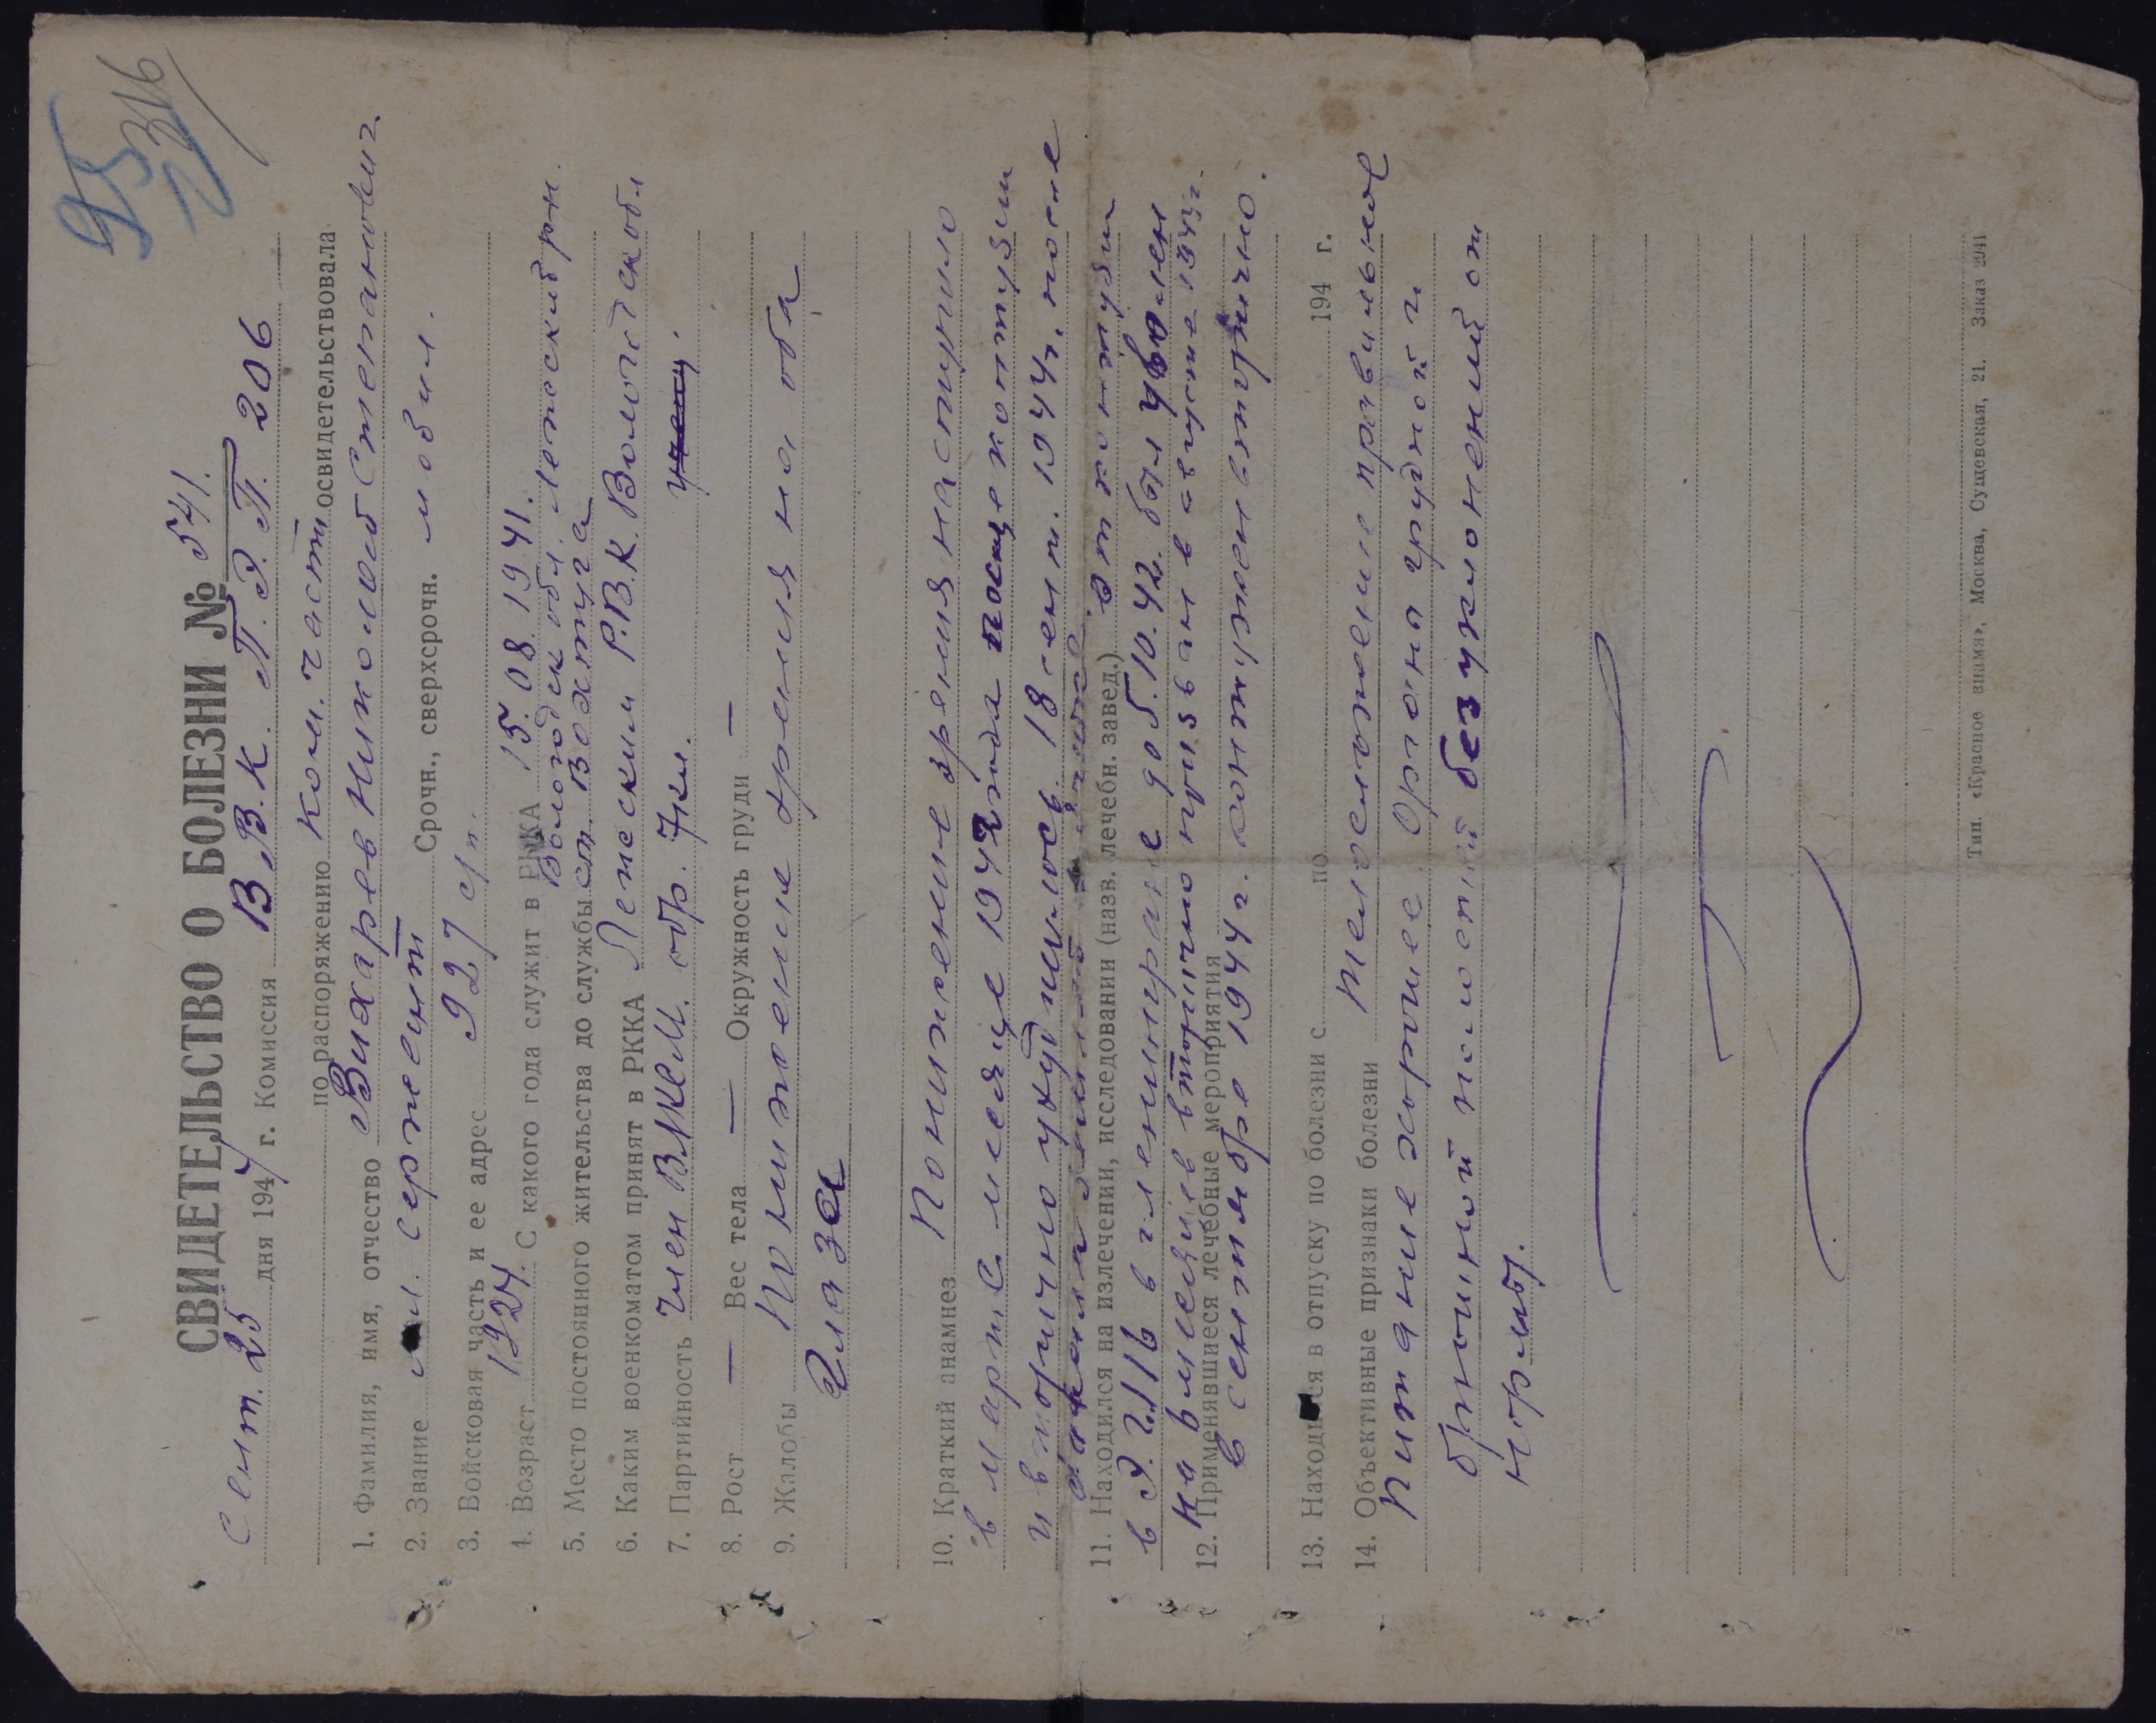 95
316
СВИДЕТЕЛЬСТВО О БОЛЕЗНИ № 541.
Сент. 25 дня 1944 г. Комиссия В.В.К. П.Э.П. 206
по распоряжению Ком. части освидетельствовала
1. Фамилия, имя, отчество Вихарев Николай Степанович
2. Звание мл. сержант Срочн., сверхсрочн. мобил.
3. Войсковая часть и ее адрес 927 с/п.
4. Возраст 1924. С какого года служит в РККА 15.08.1941.
Вологодск обл. Лежский рн.
5. Место постоянного жительства до службы ст. Вохтуга
6. Каким военкоматом принят в РККА Лежским Р.В.К. Вологодск обл
7. Партийность член ВЛКСМ. обр. 7кл.
8. Рост — Вес тела — Окружность груди —
9. Жалобы Понижение зрения на оба
глаза
10. Краткий анамнез Понижение зрения наступило
в марте месяце 1942 года после контузии
и вторично ухудшилось 18 сент. 1944г. после
контузии
11. Находился на излечении, исследовании (назв. лечебн. завед.) от контузии
в Э.Г. 1116 в г Ленинграде до 5.10.42. был уволен
на 6 месяцев вторично призван в августе 1943г.
12. Применявшиеся лечебные мероприятия
в сентябре 1944 г. контужен вторично.
13. Находился в отпуску по болезни с по 194 г.
14. Объективные признаки болезни Телосложение правильное
питание хорошее. Органы грудной и
брюшной полостей без уклонений от
нормы.
Тип. «Красное знамя», Москва, Сущевская, 21. Заказ 2041